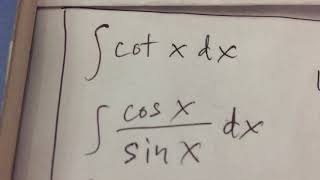 ∫ cot x dx
∫ cos x / sin x dx